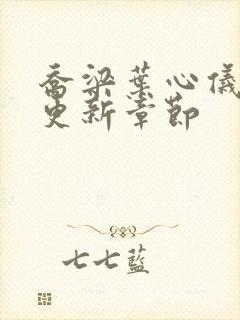 喬梁葉心儀
更新章節
七七藍